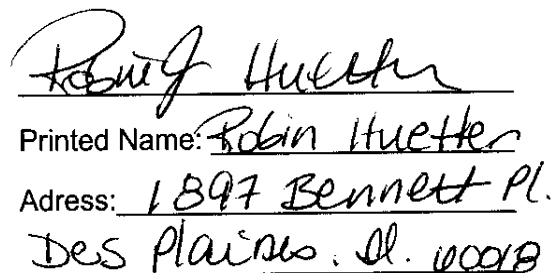 Robin J Huetter
Printed Name: Robin Huetter
Adress: 1897 Bennett Pl.
Des Plaines. Il. 60018